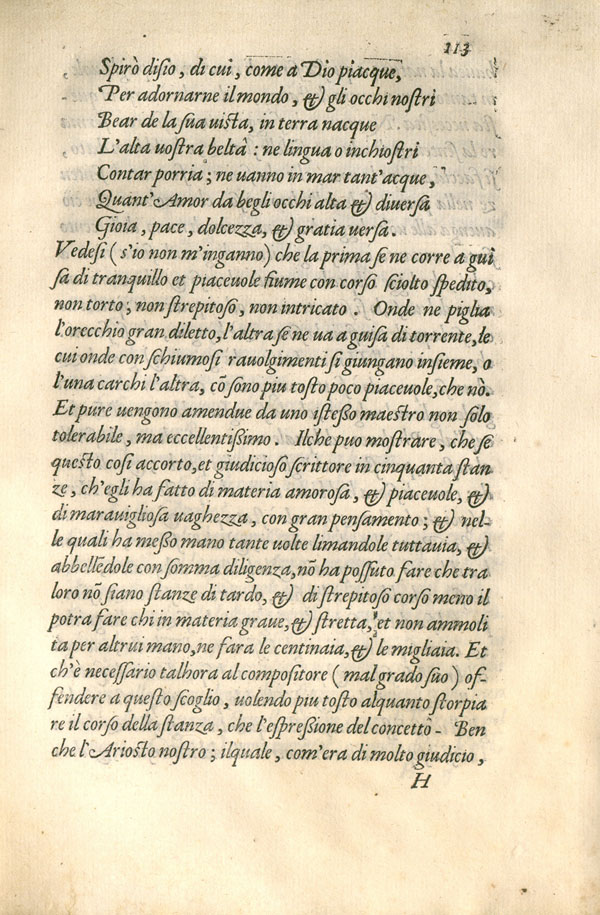 113
Spirò disio, di cui, come a Dio piacque,
Per adornarne il mondo, & gli occhi nostri
Bear de la sua vista, in terra nacque
L'alta uostra beltà : ne lingua o inchiostri
Contar porria ; ne uanno in mar tant'acque,
Quant'Amor da begli occhi alta & diuersa
Gioia, pace, dolcezza, & gratia versa.
Vedesi ( s'io non m'inganno) che la prima se ne corre a gui
sa di tranquillo et piaceuole fiume con corso sciolto spedito,
non torto ; non strepitoso, non intricato . Onde ne piglia
l'orecchio gran diletto, l'altra se ne ua a guisa di torrente, le
cui onde con schiumosi rauolgimenti si giungano insieme, o
l'una carchi l'altra, cõ sono piu tosto poco piaceuole, che nò.
Et pure uengono amendue da uno istesso maestro non solo
tolerabile, ma eccellentissimo. Ilche puo mostrare, che se
questo cosi accorto, et giudicioso scrittore in cinquanta stan
ze, ch'egli ha fatto di materia amorosa, & piaceuole, &
di marauigliosa uaghezza, con gran pensamento ; & nel-
le quali ha messo mano tante uolte limandole tuttauia, &
abbellẽdole con somma diligenza, nõ ha possuto fare che tra
loro nõ siano stanze di tardo, & di strepitoso corso meno il
potra fare chi in materia graue, & stretta, et non ammoli
ta per altrui mano, ne fara le centinaia, & le migliaia. Et
ch'è necessario talhora al compositore ( mal grado suo ) of-
fendere a questo scoglio, uolendo piu tosto alquanto storpia
re il corso della stanza, che l'espressione del concetto - Ben
che l'Ariosto nostro ; ilquale, com'era di molto giudicio,
H